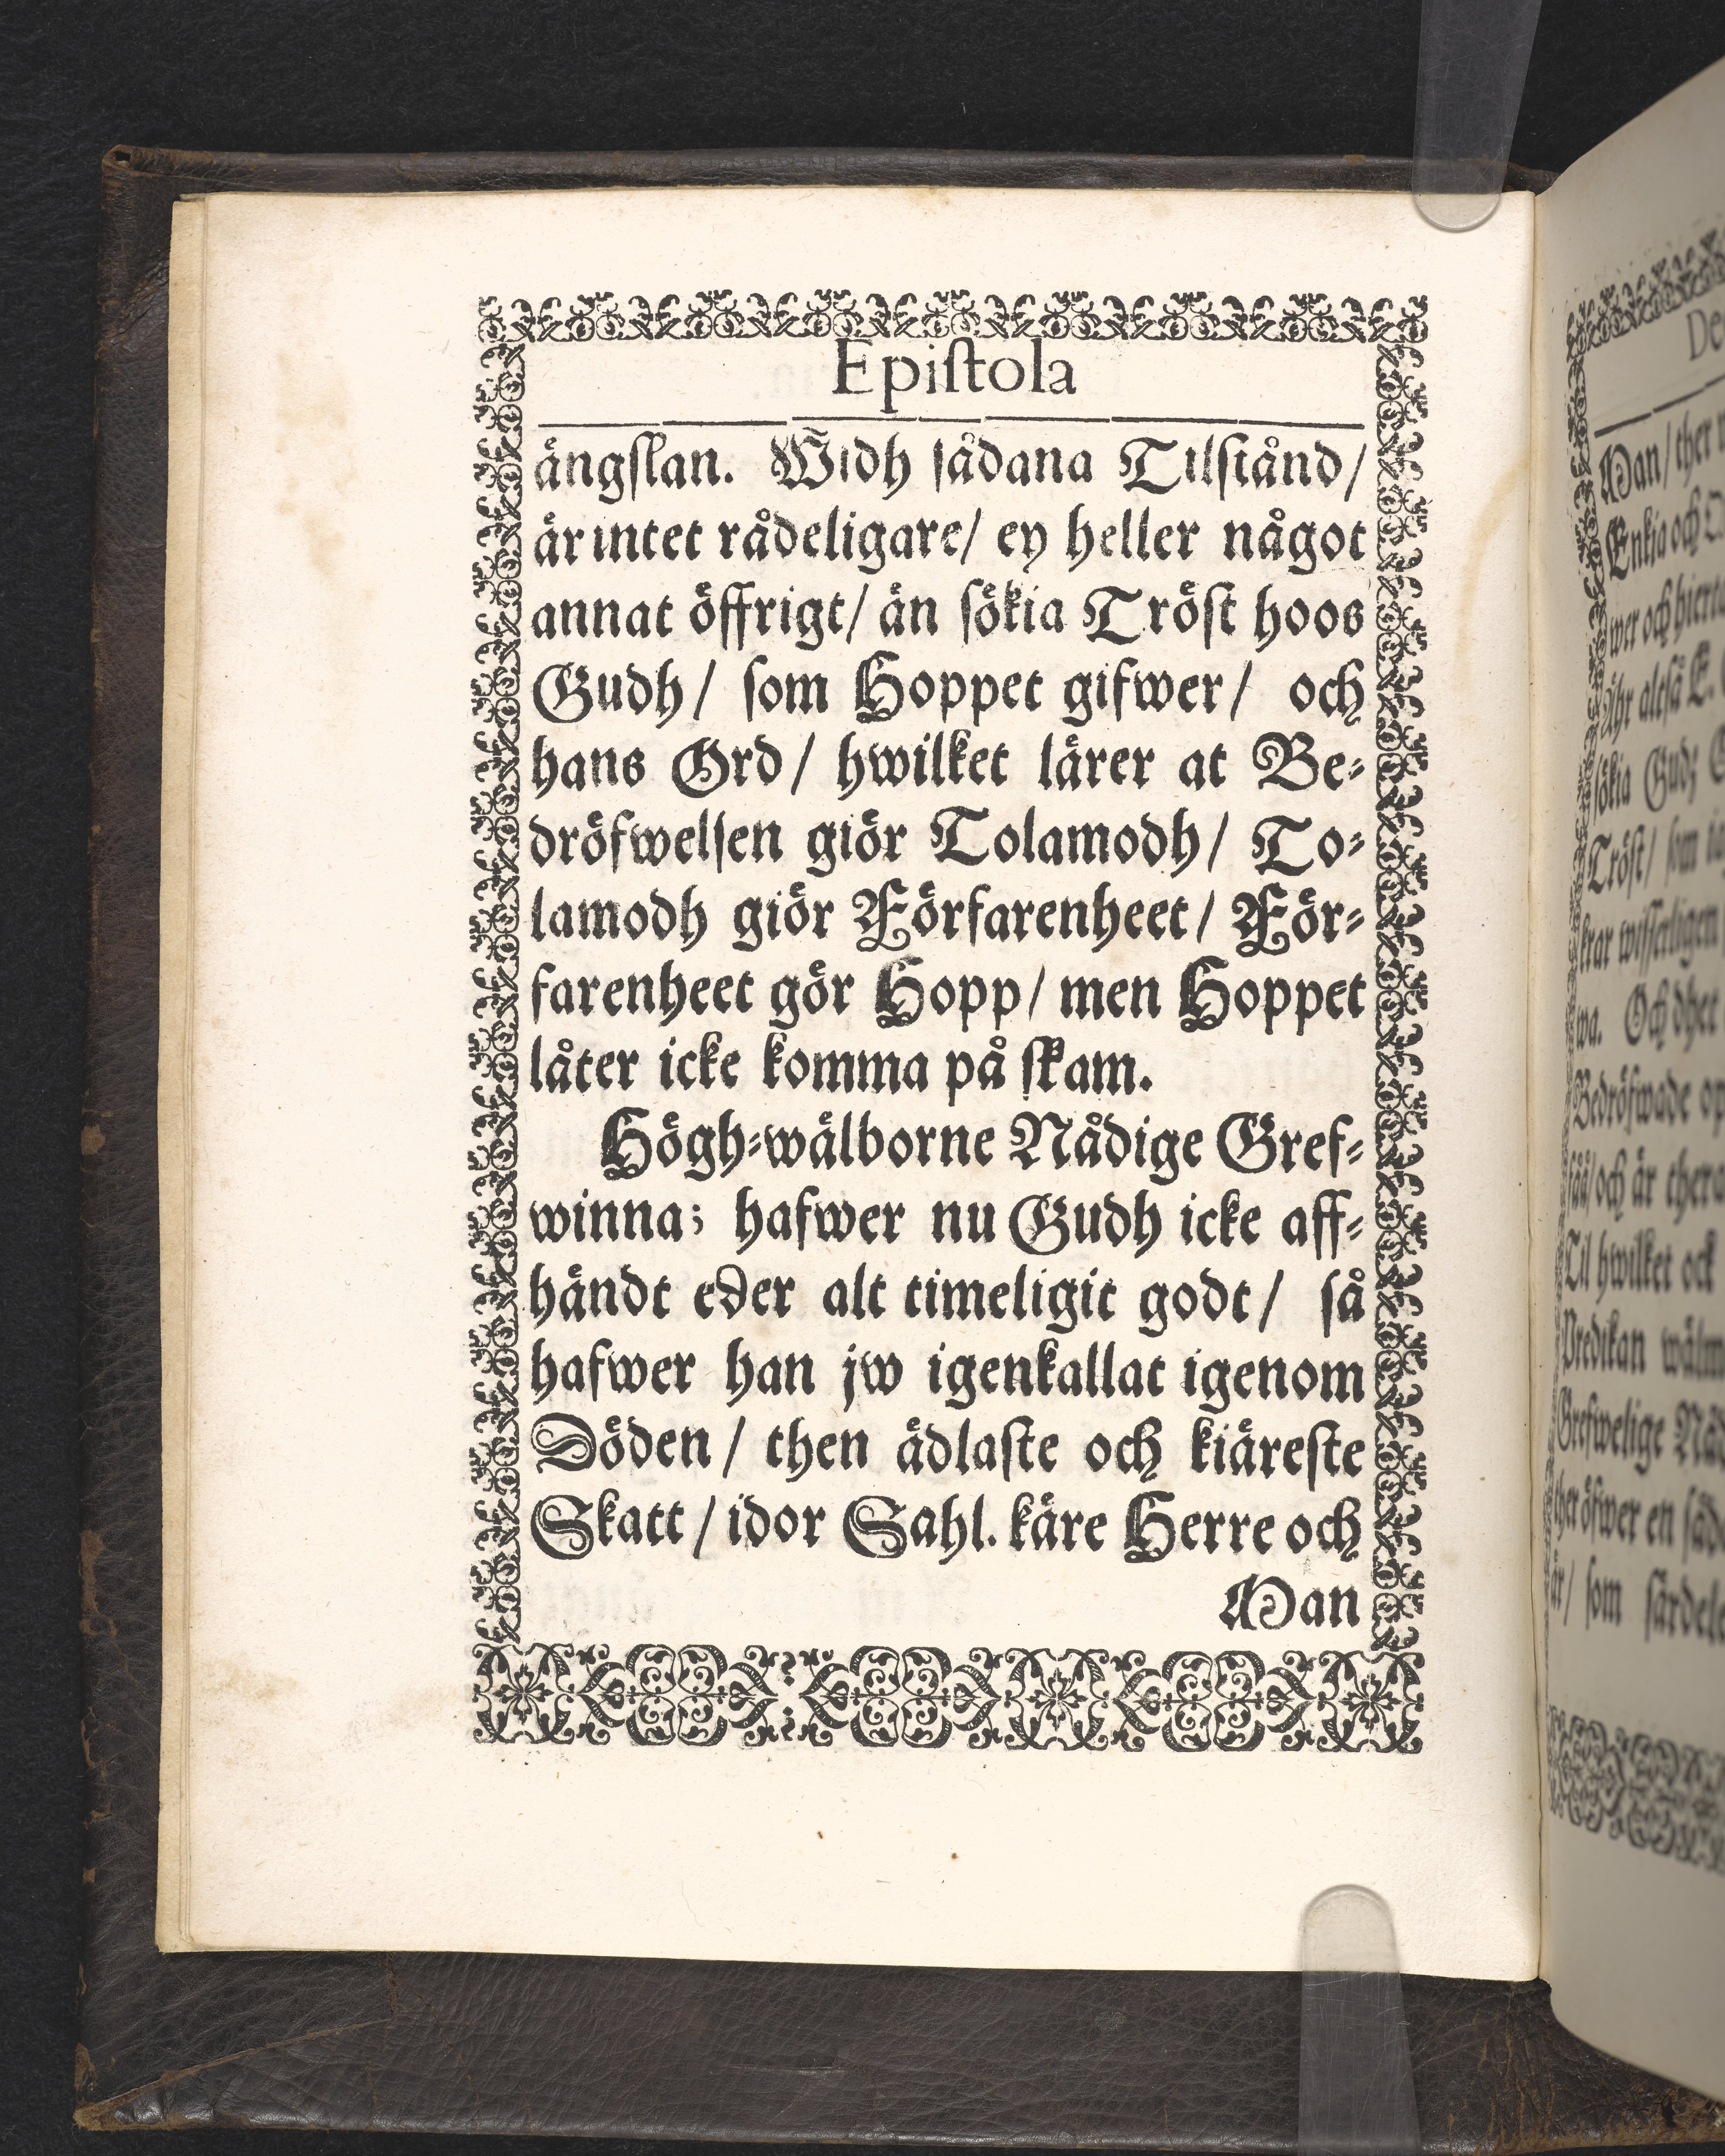 Epiſtola
ängſlan. Widh ſådana Tilſtånd/
är intet rådeligare/ ey heller något
annat öffrigt/ än ſökia Tröſt hoos
Gudh/ ſom Hoppet gifwer/ och
hans Ord/ hwilket lärer at Be⸗
dröfwelſen giör Tolamodh/ To⸗
lamodh giör Förfarenheet/ För⸗
farenheet gör Hopp/ men Hoppet
låter icke komma på ſkam.
Högh⸗wälborne Nådige Gref⸗
winna; hafwer nu Gudh icke aff⸗
händt eder alt timeligit godt/ ſå
hafwer han jw igenkallat igenom
Döden/ then ädlaſte och kiäreſte
Skatt/ idor Sahl. käre Herre och
Man
De
Man/ ther
Enkia och
wer och
Ähr altſå E.
ſökia Gudz
Tröſt/ ſom
krar wiſſerligen
wa. Och dhet
Bedröfwade
ſåå/ och är
Til hwilket ock
Predikan
Grefwelige
ther öfwer en
är/ ſom